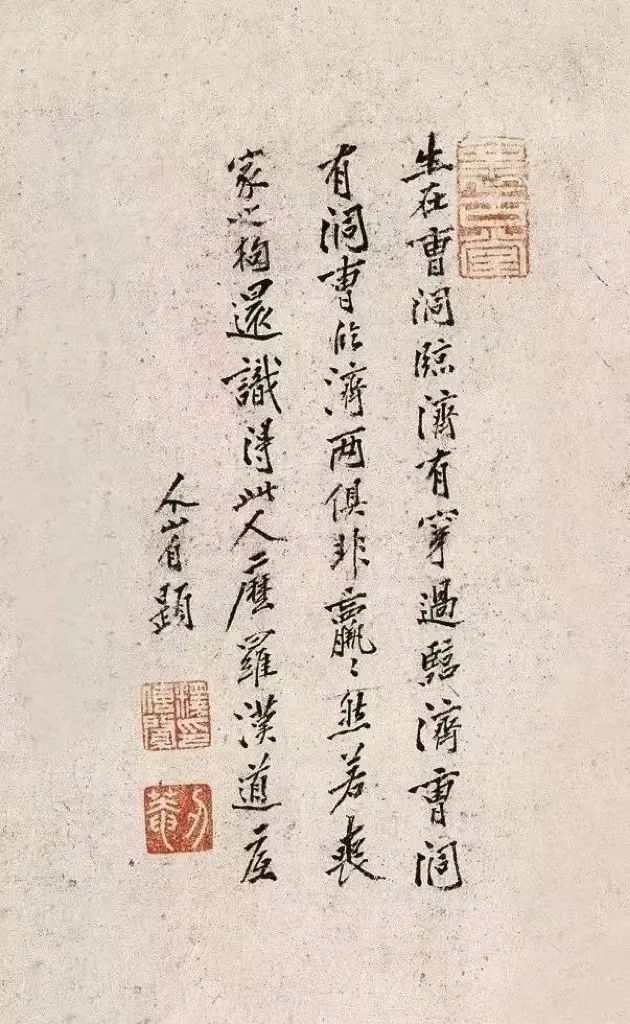 生在曹洞臨濟有穿過臨濟曹洞
有洞曹临濟兩俱非羸〻然若喪
家之狗還識得此人麼羅漢道底
个山自題
刃菴